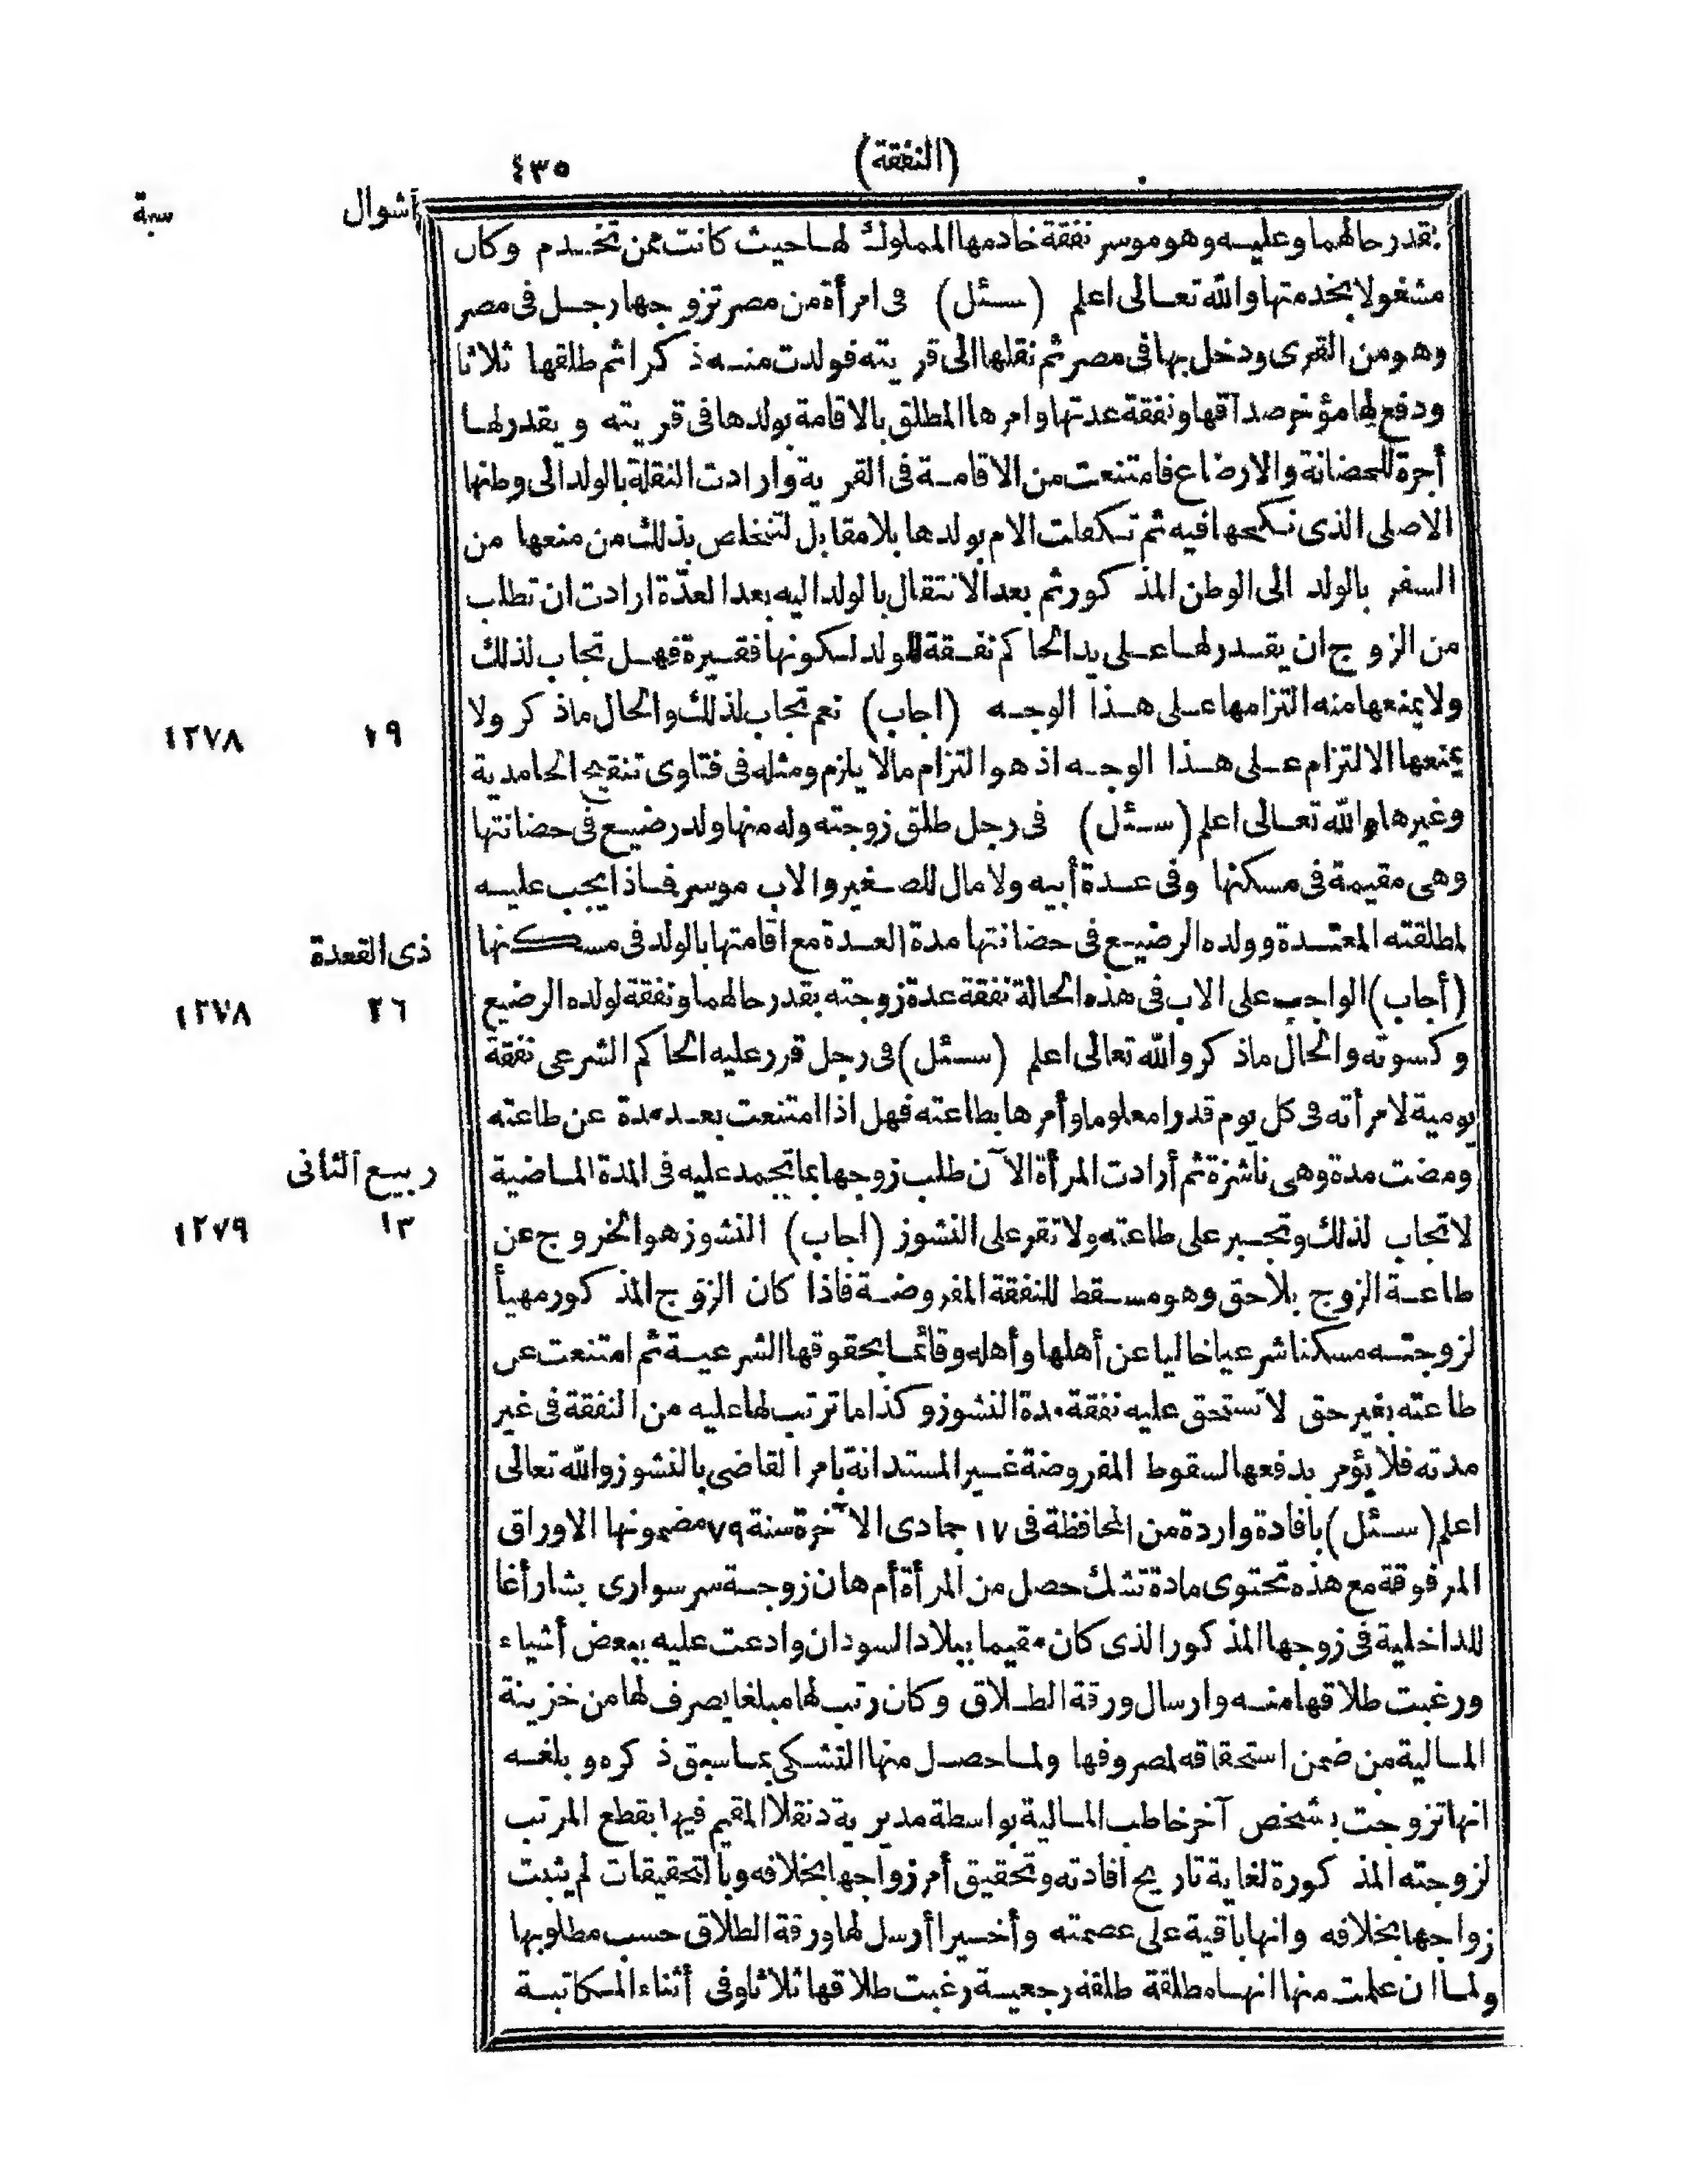 (النفقة) ٤٣٥
شوال سنة
بقدر حالهما وعليه وهو موسر نفقة خادمها المملوك لها حيث كانت ممن تخدم وكان
مشغولا بخدمتها والله تعالى اعلم (سئل) فى امرأة من مصر تزوجها رجل فى مصر
وهو من القرى ودخل بها فى مصر ثم نقلها الى قريته فولدت منه ذكرا ثم طلقها ثلاثا
ودفع لها مؤخر صداقها ونفقة عدتها وامرها المطلق بالاقامة بولدها فى قريته ويقدر لها
أجرة للحضانة والارضاع فامتنعت من الاقامة فى القرية وارادت النقلة بالولد الى وطنها
الاصلى الذى نكحها فيه ثم تكفلت الام بولدها بلا مقابل لتتخلص بذلك من منعها من
السفر بالولد الى الوطن المذكور ثم بعد الانتقال بالولد اليه بعد العدّة ارادت ان تطلب
من الزوج ان يقدر لها على يد الحاكم نفقة للولد لكونها فقيرة فهل تجاب لذلك
ولا يمنعها منه التزامها على هذا الوجه (اجاب) نعم تجاب لذلك والحال ماذكر ولا
١٩ ١٢٧٨
يمنعها الالتزام على هذا الوجه اذ هو التزام مالا يلزم ومثله فى فتاوى تنقيح الحامدية
وغيرها والله تعالى اعلم (سئل) فى رجل طلق زوجته وله منها ولد رضيع فى حضانتها
وهى مقيمة فى مسكنها وفى عدة أبيه ولا مال للصغير والاب موسر فماذا يجب عليه
لمطلقته المعتدة وولده الرضيع فى حضانتها مدة العدة مع اقامتها بالولد فى مسكنها
ذى القعدة
(أجاب) الواجب على الاب فى هذه الحالة نفقة عدة زوجته بقدر حالهما ونفقة لولده الرضيع
٢٦ ١٢٧٨
وكسوته والحال ماذكر والله تعالى اعلم (سئل) فى رجل قرر عليه الحاكم الشرعى نفقة
يومية لامرأته فى كل يوم قدرا معلوما وأمرها بطاعته فهل اذا امتنعت بعد مدة عن طاعته
ومضت مدة وهى ناشزة ثم أرادت المرأة الآن طلب زوجها بما تجمد عليه فى المدة الماضية
ربيع الثانى
لا تجاب لذلك وتجبر على طاعته ولا تقر على النشوز (اجاب) النشوز هو الخروج عن
١٣ ١٢٧٩
طاعة الزوج بلا حق وهو مسقط للنفقة المفروضة فاذا كان الزوج المذكور مهيأ
لزوجته مسكنا شرعيا خاليا عن أهلها وأهله وقائما بحقوقها الشرعية ثم امتنعت عن
طاعته بغير حق لا تستحق عليه نفقة مدة النشوز وكذا ما ترتب لها عليه من النفقة فى غير
مدته فلا يؤمر بدفعها لسقوط المفروضة غير المستدانة بامر القاضى بالنشوز والله تعالى
اعلم (سئل) بافادة واردة من المحافظة فى ١٧ جمادى الآخرة سنة ٧٩ مضمونها الاوراق
المرفوقة مع هذه تحتوى مادة تشك حصل من المرأة أم هان زوجة سر سوارى بشار أغا
للداخلية فى زوجها المذكور الذى كان مقيما ببلاد السودان وادعت عليه ببعض أشياء
ورغبت طلاقها منه وارسال ورقة الطلاق وكان رتب لها مبلغا يصرف لها من خزينة
المالية من ضمن استحقاقه لمصروفها ولما حصل منها التشكى بما سبق ذكره وبلغه
انها تزوجت بشخص آخر خاطب المالية بواسطة مديرية دنقلا المقيم فيها بقطع المرتب
لزوجته المذكورة لغاية تاريخ افادته وتحقيق أمر زواجها بخلافه وبالتحقيقات لم يثبت
زواجها بخلافه وانها باقية على عصمته وأخيرا أرسل لها ورقة الطلاق حسب مطلوبها
ولما ان علمت منها انها مطلقة طلقة رجعية رغبت طلاقها ثلاثا وفى أثناء المكاتبة